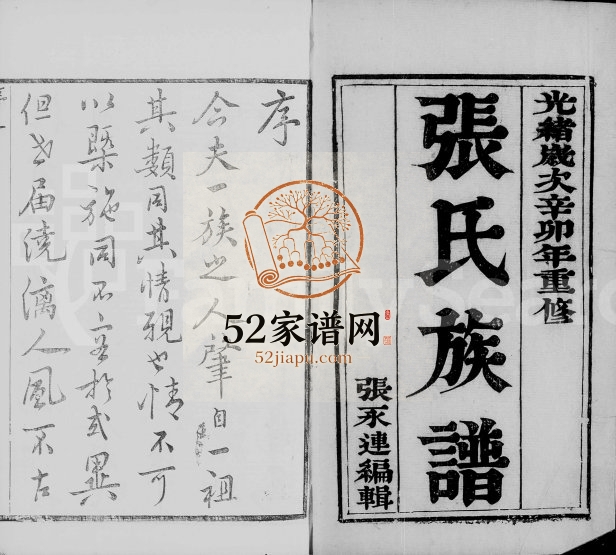 光緒歲次辛卯年重修
張氏族譜
張永連編輯
序
今夫一族之人肇自一祖
其類同其情親也情不可
以槩施同不容於或異
但世届澆漓人風不古
52家谱网
52jiapu.com